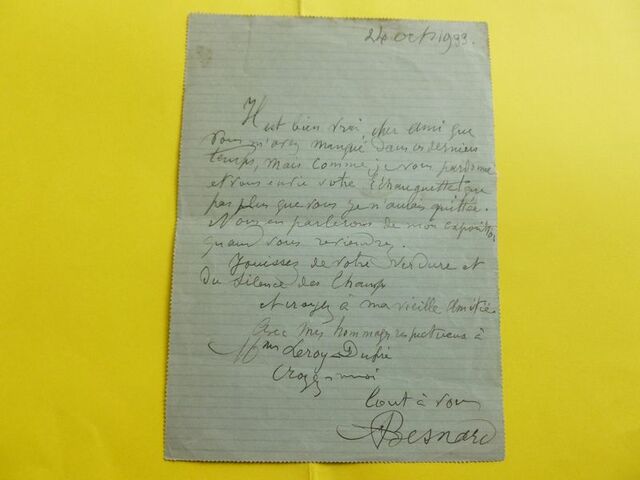 24 oct 1933.
Il est bien vrai, cher ami que
vous m'avez manqué dans ces derniers
temps, mais comme je vous pardonne
et vous envie votre Echauguette que
pas plus que vous je n'aurais quittée.
Nous en parlerons de mon exposition
quand vous reviendrez.
Jouissez de votre verdure et
du silence des champs
et croyez à ma vieille amitié
Avec mes hommages respectueux à
Mme Leroy-Dupré
croyez-moi
tout à vous
ABesnard